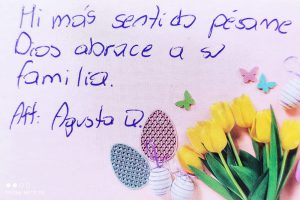 Mi más sentido pésame
Dios abrace a su
familia.
Att: Agusta Q.